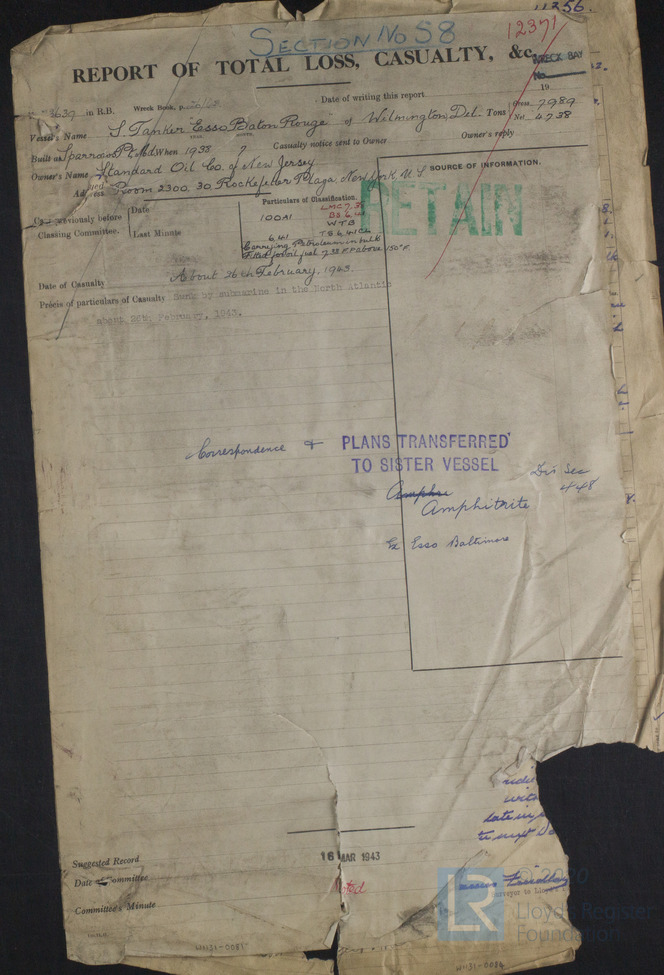 11256.
SECTION No 58
12371
REPORT OF TOTAL LOSS, CASUALTY, &c.
WRECK BAY
No
19
Date of writing this report
in R.B. Wreck Book, p.
Vessel's Name S. Tanker "Esso Baton Rouge" of Wilmington, Del. Tons Gross 7989
Net 4738
Built at Sparrows Pt, Md When 1938 ? Casualty notice sent to Owner Owner's reply
Owner's Name Standard Oil Co. of New Jersey
Address Room 2300, 30, Rockefeller Plaza, New York, U.S.
SOURCE OF INFORMATION.
RETAIN
Particulars of Classification.
Case previously before
Classing Committee.
Date
Last Minute
100A1
LMC 7,38
BS 6,41
WTB
6,41 TS 6,41 CL
Carrying Petroleum in bulk
Fitted for oil fuel 7,38 F.P. above 150°F.
Date of Casualty About 26th February, 1943.
Précis of particulars of Casualty Sunk by submarine in the North Atlantic
about 26th February, 1943.
Correspondence + PLANS TRANSFERRED
TO SISTER VESSEL
Dis Sec
448
Amphi
Amphitrite
Ex Esso Baltimore
Suggested Record
Date of Committee
16 MAR 1943
Noted
Committee's Minute
Surveyor to Lloyd's
© 2020
LR
Lloyd's Register
Foundation
W1131-0087
W1131-0086